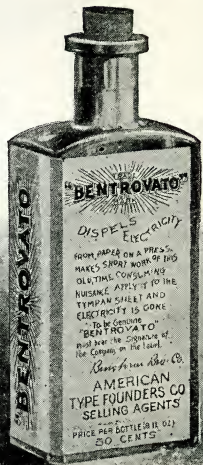 BENTROVATO
THE
"BENTROVATO"
DISPELS
ELECTRICITY
FROM PAPER ON A PRESS.
MAKES SHORT WORK OF THIS
OLD, TIME CONSUMING
NUISANCE. APPLY IT TO THE
TYMPAN SHEET AND
ELECTRICITY IS GONE
To be Genuine
"BENTROVATO"
must bear the signature of
the Company on the label.
Co.
AMERICAN
TYPE FOUNDERS CO
SELLING AGENTS
PRICE PER BOTTLE (8 FL OZ)
50 CENTS